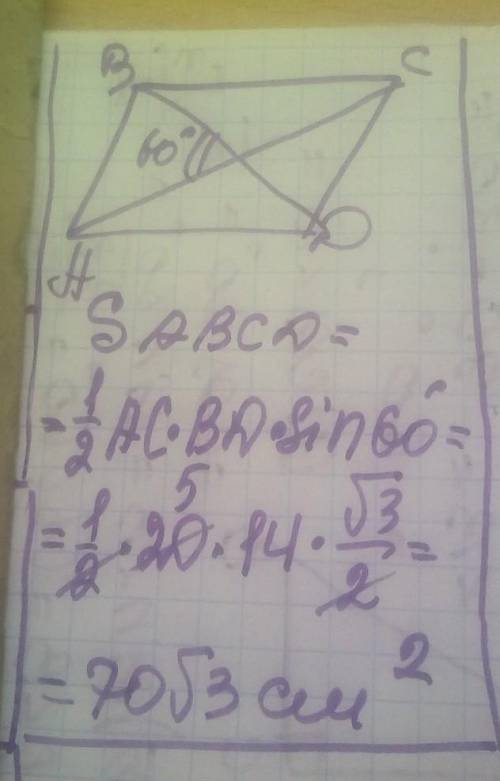 B C
60°
A D
S ABCD =
= 1/2 AC · BD · sin 60° =
5
= 1/2 · 20 · 14 · √3/2 =
= 70√3 см²